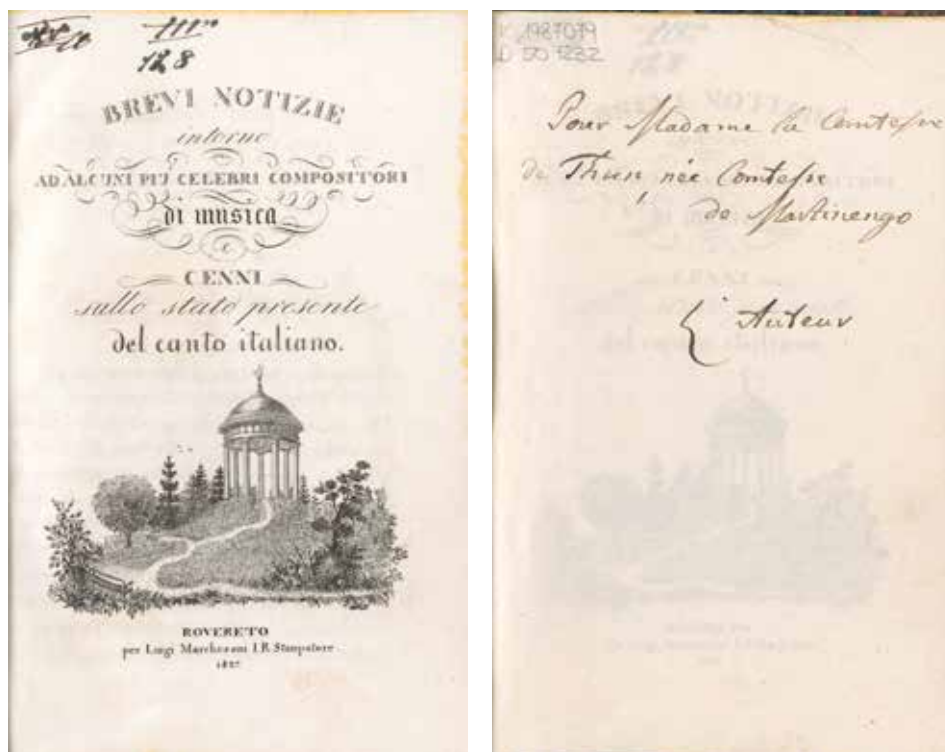 III
128
BREVI NOTIZIE
intorno
AD ALCUNI PIÙ CELEBRI COMPOSITORI
di musica
e
CENNI
sullo stato presente
del canto italiano.
ROVERETO
per Luigi Marchesani I. R. Stampatore
1827
1987079
D 50 1232
Pour Madame la Comtesse
de Thun née Comtesse
de Martinengo
L'Auteur